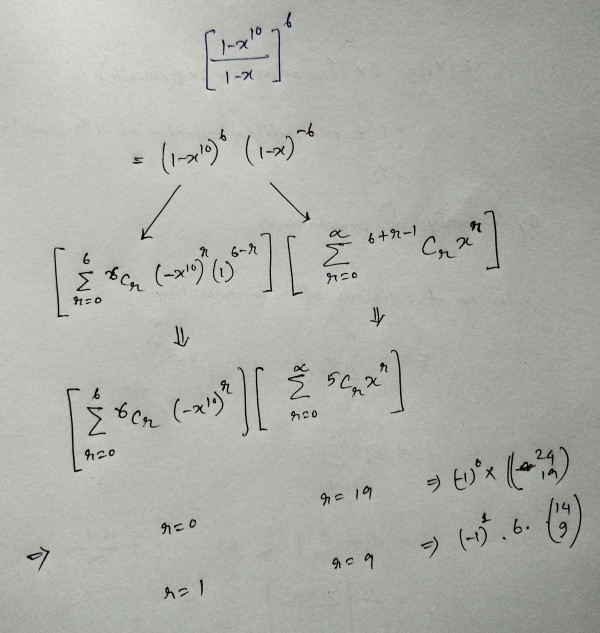 [(1-x^10)/(1-x)]^6
= (1-x^10)^6 (1-x)^-6
[∑_{r=0}^{6} ^6C_r (-x^10)^r (1)^{6-r}] [∑_{r=0}^{∝} ^{6+r-1}C_r x^r]
⇓ ⇓
[∑_{r=0}^{6} ^6C_r (-x^10)^r] [∑_{r=0}^{∝} ^5C_r x^r]
r=0 r=19 ⇒ (-1)^0 × (24 19)
⇒ r=1 r=9 ⇒ (-1)^1 . 6 . (14 9)